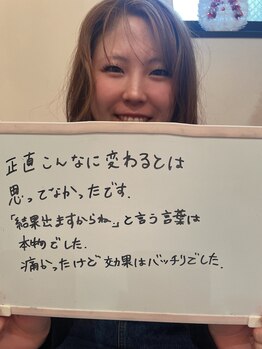 正直こんなに変わるとは
思ってなかったです.
「結果出ますからね。」と言う言葉は
本物でした.
痛かったけど効果はバッチリでした.